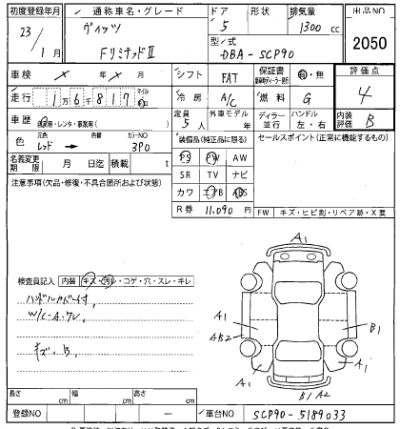 初度登録年月 通称車名・グレード ドア 形状 排気量 出品NO
23/1月 ヴィッツ 5 1300cc 2050
Fリミテッド II 型/式 DBA-SCP90
車検 × 年 × 月 シフト FAT 保証書 有・無 評価点
走行 1万6千817 マイル 冷房 A/C 燃料 G 4
車歴 自家用・レンタ・事業用( ) 定員 5人 外車モデル 年 ディーラー 並行 ハンドル 左・右 内装評価 B
色 元色 レッド → 色替 カラーNO 3P0 装備品(純正品に限る) セールスポイント(正常に機能するもの)
名義変更期限 月 日迄 積載 t PS PW AW
SR TV ナビ
注意事項(欠品・修復・不具合箇所および状態) カワ エアB ABS
R券 11,090円 FW キズ・ヒビ割・リペア跡・X要
A1
検査員記入 内装 キズ・汚レ・コゲ・穴・スレ・キレ
W/C・A・ワレ A1 B1
AB2
キズ・B A1 A1
B1 A2
長さ cm 幅 cm 高さ cm
登録NO ー 車台NO SCP90-5189033